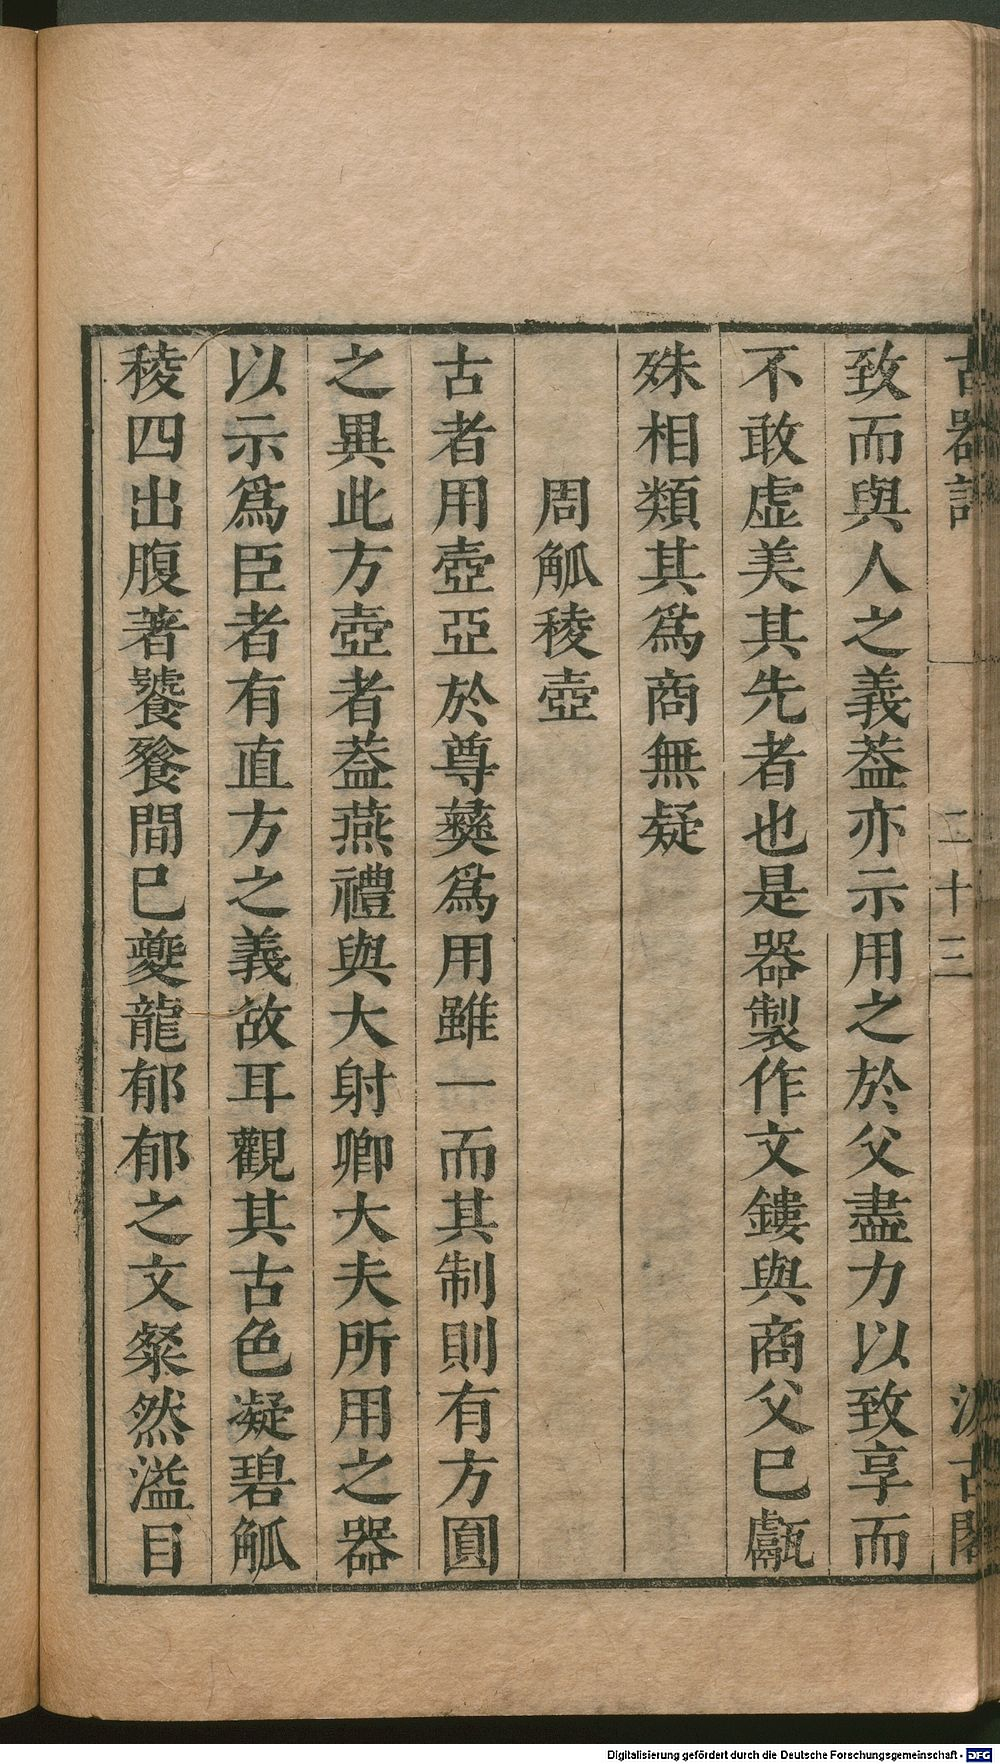 古器
二十三
汲古閣
致而與人之義葢亦示用之於父盡力以致享而
不敢虛美其先者也是器製作文鏤與商父巳甗
殊相類其爲商無疑
周觚稜壺
古者用壺亞於尊彝爲用雖一而其制則有方圓
之異此方壺者葢燕禮與大射卿大夫所用之器
以示爲臣者有直方之義故耳觀其古色凝碧觚
稜四出腹著饕餮間巳夔龍郁郁之文粲然溢目
Digitalisierung gefördert durch die Deutsche Forschungsgemeinschaft - DFG